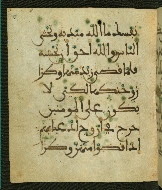 نفسك ما الله مبديه وتخشى
الناس والله احق ان تخشيه
فلما قضى زيد منها وطرا
زوجنكها لكى لا
يكون على المومنين
حرج فى ازوج ادعيائهم
اذا قضوا منهن وطرا